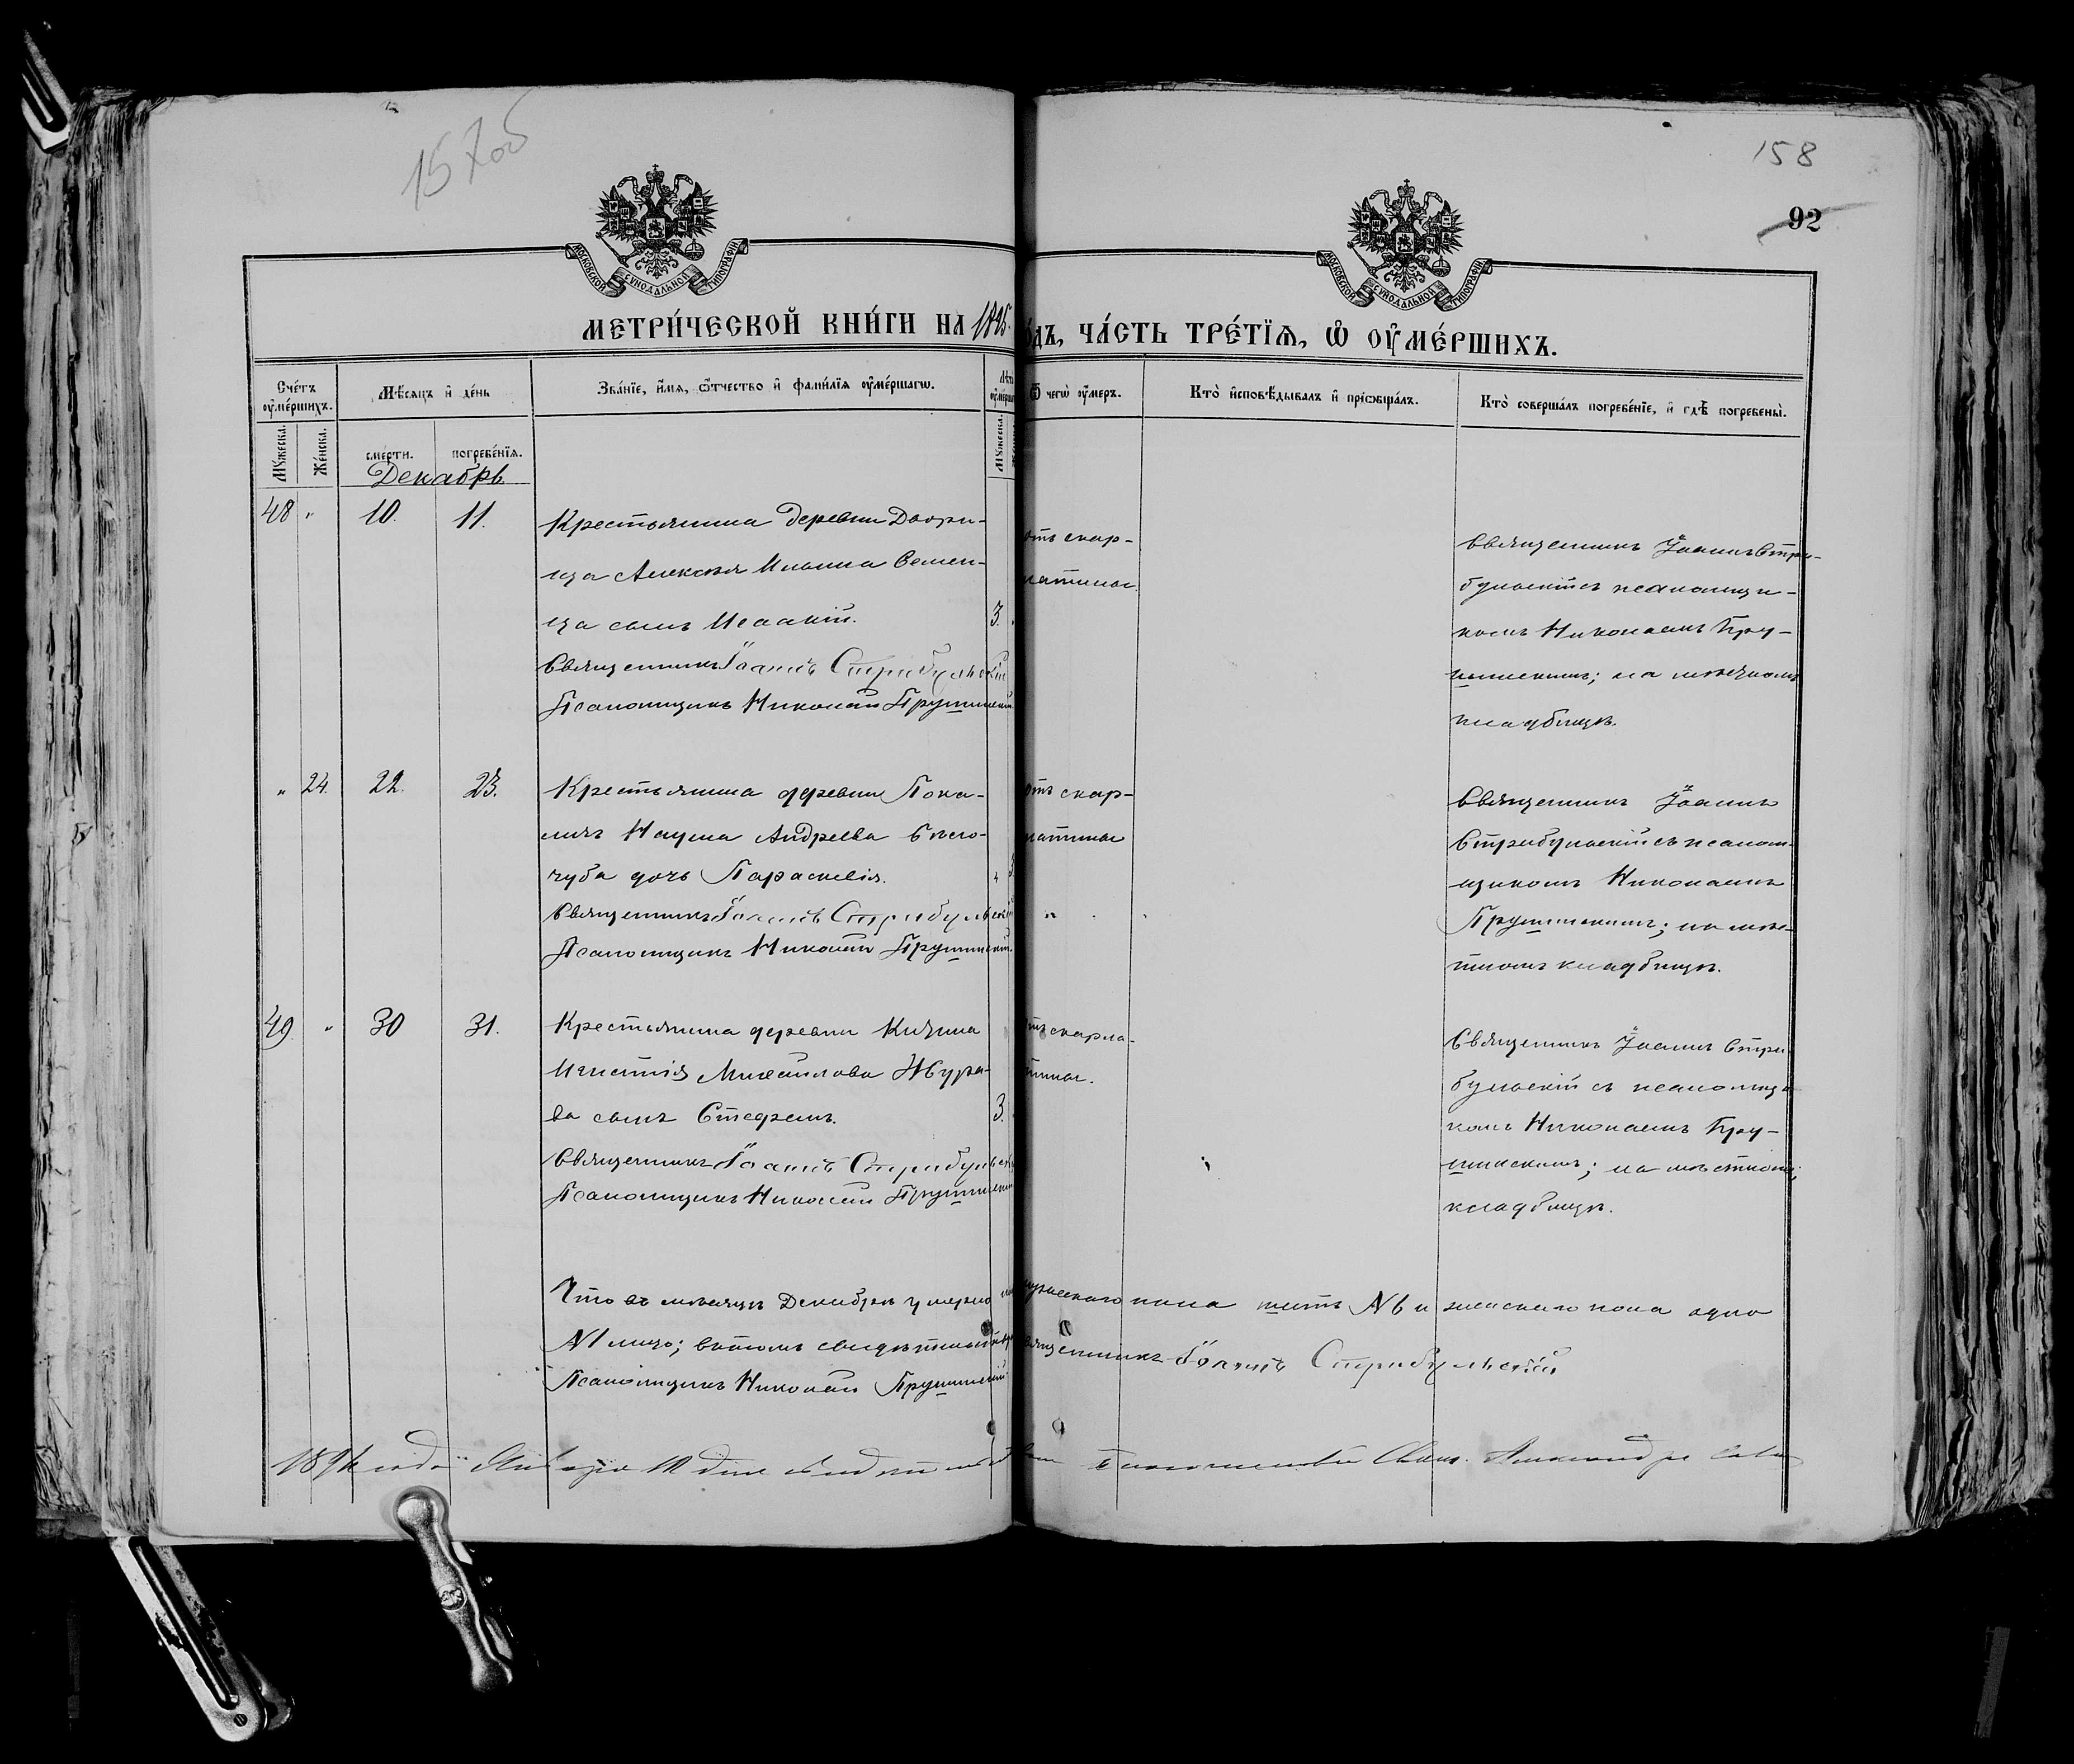 157об
158
92
МОСКОВСКОЙ СУНОДАЛЬНОЙ ТИПОГРАФІИ
МОСКОВСКОЙ СУНОДАЛЬНОЙ ТИПОГРАФІИ
МЕТРИ́ЧЕСКОЙ КНИ́ГИ НА 1895
ДЪ, ЧА́СТЬ ТРЕ́ТІѦ, Ѡ҆ ОУ҆МЕ́РШИХЪ.
Сче́тъ оу҆ме́ршихъ.
Мѣ́сяцъ и҆ де́нь
Зва́нїе, и҆́мѧ, ѻ҆́тчество и҆ фами́лїѧ оу҆ме́ршагѡ.
Ѿ чегѡ̀ оу҆́меръ.
Кто̀ и҆сповѣ́дывалъ и҆ прїѡбща́лъ.
Кто̀ соверша́лъ погребе́нїе, и҆ гдѣ̀ погребены̀.
Мꙋ́жеска.
Же́нска.
сме́рти.
погребе́нїѧ.
Мꙋ́жеска.
Декабрь
48 " 10. 11.
Крестьянина деревни Двори-
ща Алексѣя Ильина Семен-
ца сынъ Исаакій.
3.
Священникъ Іоаннъ Стрибульскій
Псаломщикъ Николай Прушинскій
отъ скар-
латины
Священникъ Іоаннъ Стри-
бульскій съ псаломщи-
комъ Николаемъ Пру-
шинскимъ; на мѣстномъ
кладбищѣ.
" 24. 22. 23.
Крестьянина деревни Пока-
личъ Наума Андреева Бѣло-
чуба дочь Параскевія.
Священникъ Іоаннъ Стрибульскій
Псаломщикъ Николай Прушинскій.
отъ скар-
латины
Священникъ Іоаннъ
Стрибульскій съ псалом-
щикомъ Николаемъ
Прушинскимъ; на мѣс-
тномъ кладбищѣ.
49 " 30 31.
Крестьянина деревни
Игнатія Михайлова Жура-
ва сынъ Стефанъ.
3.
Священникъ Іоаннъ Стрибульскій
Псаломщикъ Николай Прушинскій
отъ скарла-
тины.
Священникъ Іоаннъ Стри-
бульскій съ псаломщи-
комъ Николаемъ Пру-
шинскимъ; на мѣстномъ
кладбищѣ.
Что въ мѣсяцѣ Декабрѣ умерло мужескаго пола шесть №6 и женскаго пола одно
№1 лицо; въ томъ свидѣтельствуемъ Священникъ Іоаннъ Стрибульскій
Псаломщикъ Николай Прушинскій
года Января 10 дня Александръ